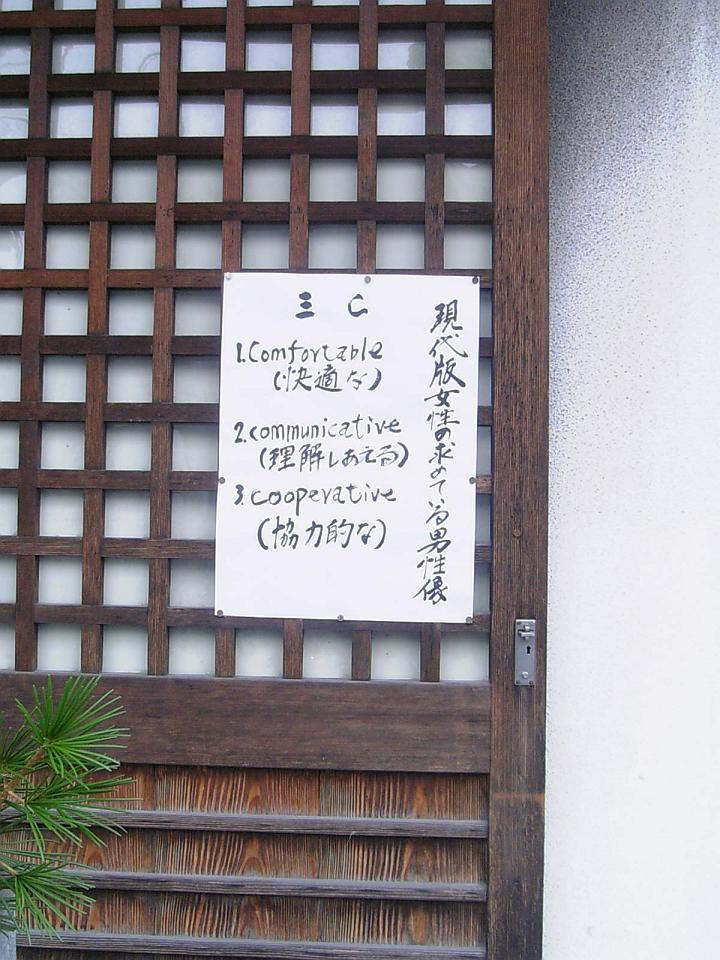 現代版女性の求めている男性像
三C
1.Comfortable
(快適な)
2.communicative
(理解しあえる)
3.cooperative
(協力的な)